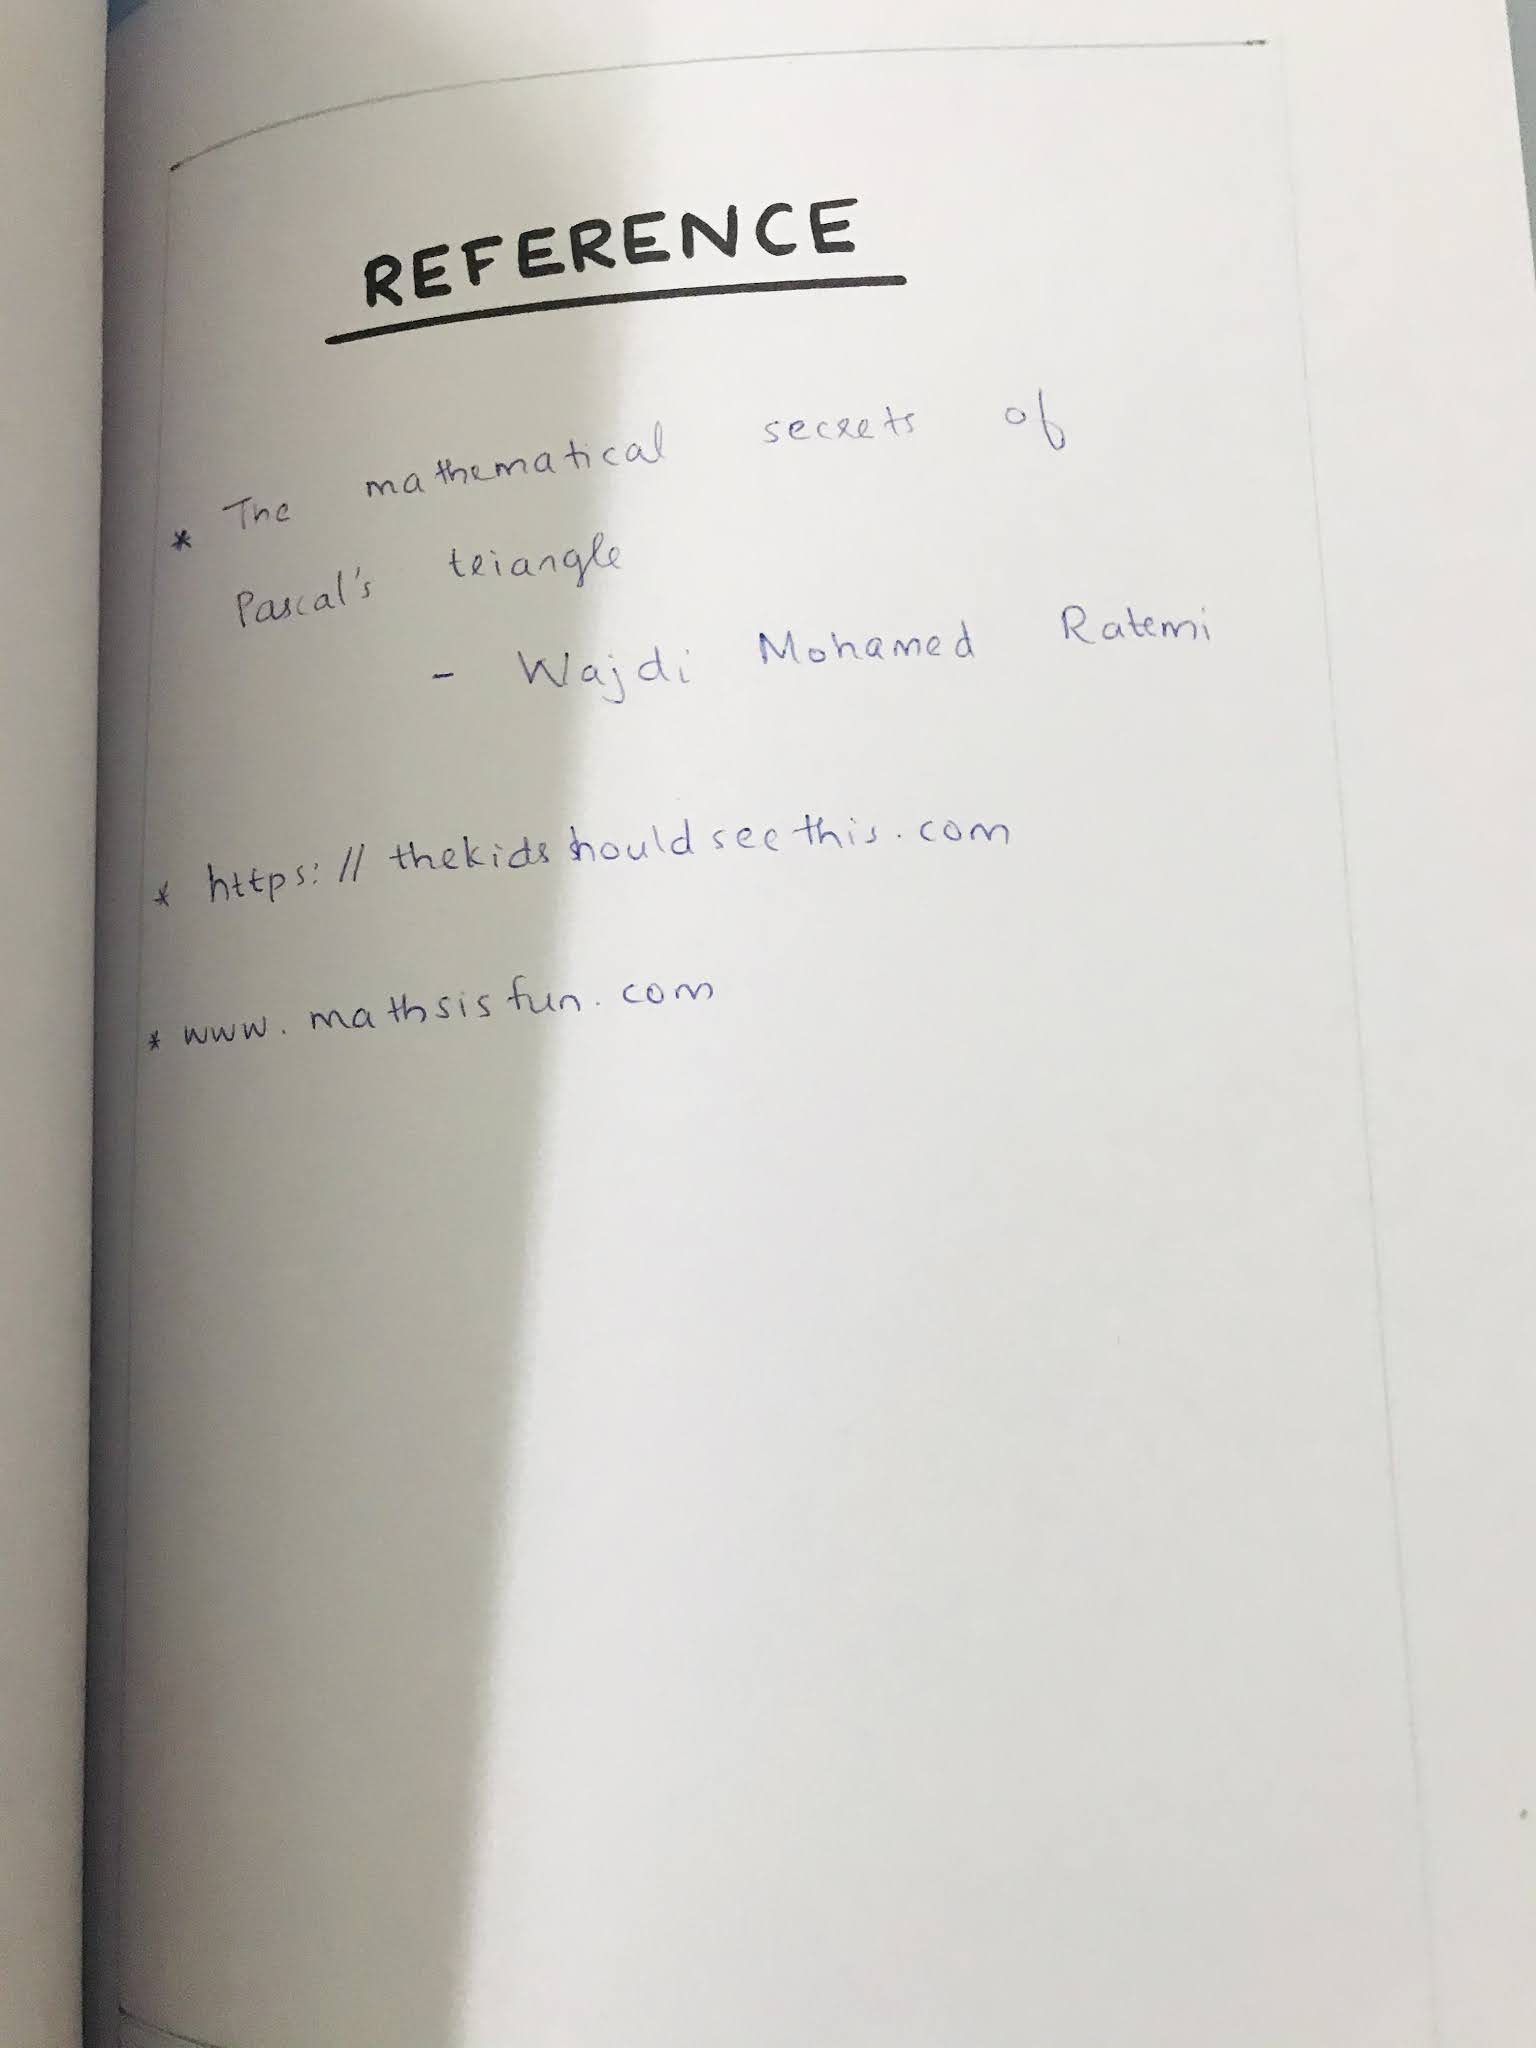 REFERENCE
* The mathematical secrets of
Pascal's triangle
- Wajdi Mohamed Ratemi
* https://thekidshouldseethis.com
* www.mathsisfun.com